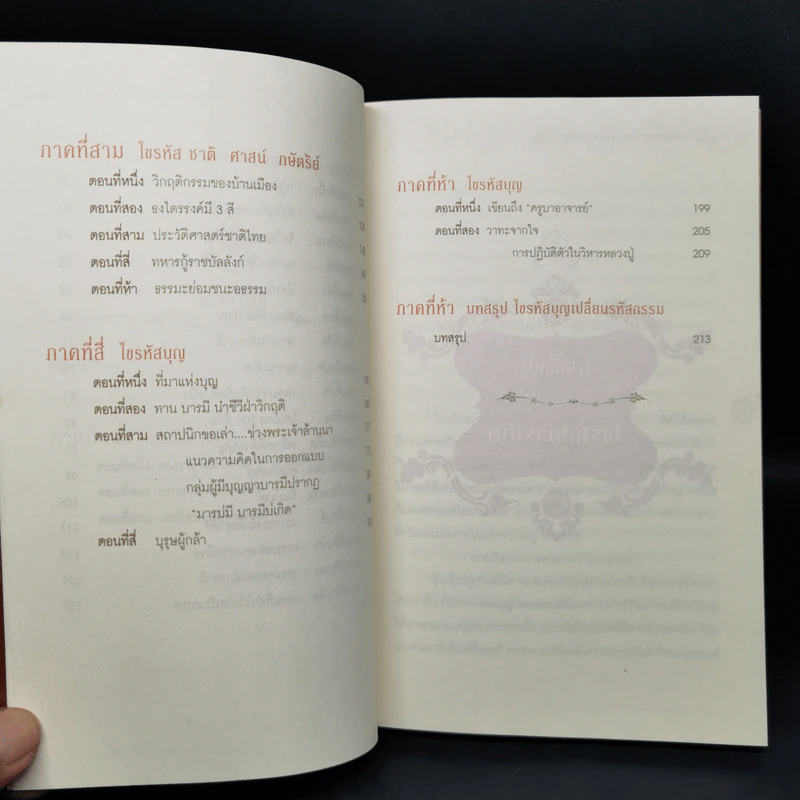 ภาคที่สาม ไขรหัส ชาติ ศาสน์ กษัตริย์
ตอนที่หนึ่ง วิกฤติกรรมของบ้านเมือง
ตอนที่สอง ธงไตรรงค์มี 3 สี
ตอนที่สาม ประวัติศาสตร์ชาติไทย
ตอนที่สี่ ทหารกู้ราชบัลลังก์
ตอนที่ห้า ธรรมะย่อมชนะอธรรม
ภาคที่สี่ ไขรหัสบุญ
ตอนที่หนึ่ง ที่มาแห่งบุญ
ตอนที่สอง ทาน บารมี นำชีวีฝ่าวิกฤติ
ตอนที่สาม สถาปนิกขอเล่า....ข่วงพระเจ้าล้านนา
แนวความคิดในการออกแบบ
กลุ่มผู้มีบุญญาบารมีปรากฏ
"มารบ่มี บารมีบ่เกิด"
ตอนที่สี่ บุรุษผู้กล้า
ภาคที่ห้า ไขรหัสบุญ
ตอนที่หนึ่ง เขียนถึง "ครูบาอาจารย์" 199
ตอนที่สอง วาทะจากใจ 205
การปฏิบัติตัวในวิหารหลวงปู่ 209
ภาคที่ห้า บทสรุป ไขรหัสบุญเปลี่ยนรหัสกรรม
บทสรุป 213